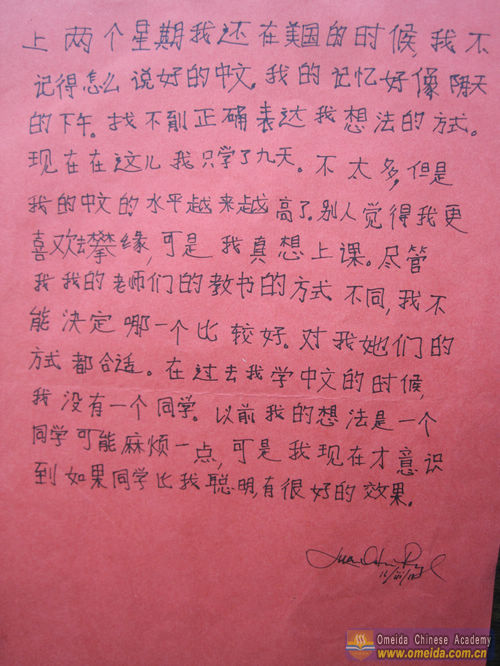 上两个星期我还在美国的时候,我不
记得怎么说好的中文。我的记忆好像阴天
的下午。找不到正确表达我想法的方式。
现在在这儿我只学了九天。不太多,但是
我的中文的水平越来越高了。别人觉得我更
喜欢去攀缘,可是我真想上课。尽管
我我的老师们的教书的方式不同,我不
能决定哪一个比较好。对我她们的
方式都合适。在过去我学中文的时候,
我没有一个同学。以前我的想法是一个
同学可能麻烦一点,可是我现在才意识
到如果同学比我聪明,有很好的效果。
Omeida Chinese Academy
www.omeida.com.cn